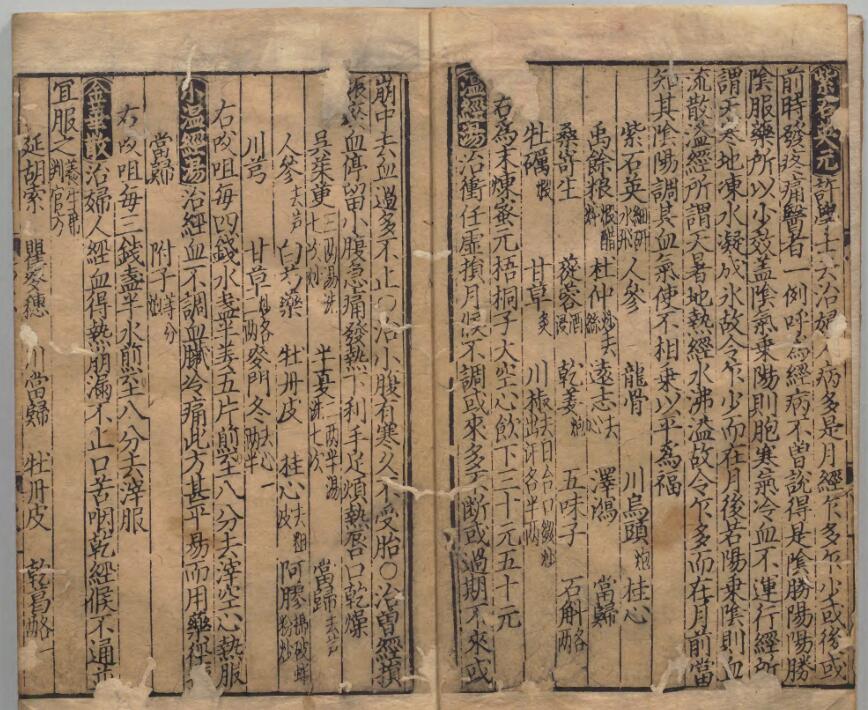 紫石英元許學士云治婦人病多是月經乍多乍少或後或
前時發疼痛醫者一例呼為經病不曾說得是陰勝陽陽勝
陰服藥所以少效蓋陰氣乗陽則胞寒氣冷血不運行經所
謂天寒地凍水凝成氷故令乍少而在月後若陽乗陰則血
流散溢經所謂天暑地熱經水沸溢故令乍多而在月前當
知其陰陽調其血氣使不相乗以平為福
紫石英細研水飛 人參 龍骨 川烏頭炮 桂心
禹餘粮煆醋淬 杜仲炒去絲 遠志去心 澤瀉 當歸
桑寄生 蓯蓉酒浸 乾姜炮 五味子 石斛各
牡蠣煆 甘草炙 川椒去目合口微炒出汗各半兩
右為末煉蜜元梧桐子大空心飲下三十元五十元
溫經湯治衝任虛損月候不調或來多不斷或過期不來或
崩中去血過多不止〇治小腹有寒久不受胎〇治曽經損
血停留小腹急痛發熱下利手足煩熱唇口乾燥
吳茱萸三兩湯洗七次炒 半夏二兩半湯洗七次 當歸去蘆
人參去芦 白芍藥 牡丹皮 桂心去粗皮 阿膠搗破蛤粉炒
川芎 甘草各二兩 麥門冬去心二兩半
右㕮咀每四錢水盞半姜五片煎至八分去滓空心熱服
小溫經湯治經血不調血臓冷痛此方甚平易而用藥徑
當歸 附子炮等分
右㕮咀每三錢盞半水煎至八分去滓服
金華散治婦人經血得熱崩漏不止口苦咽乾經候不通並
宜服之判官方
延胡索 瞿麥穗 川當歸 牡丹皮 乾葛略一